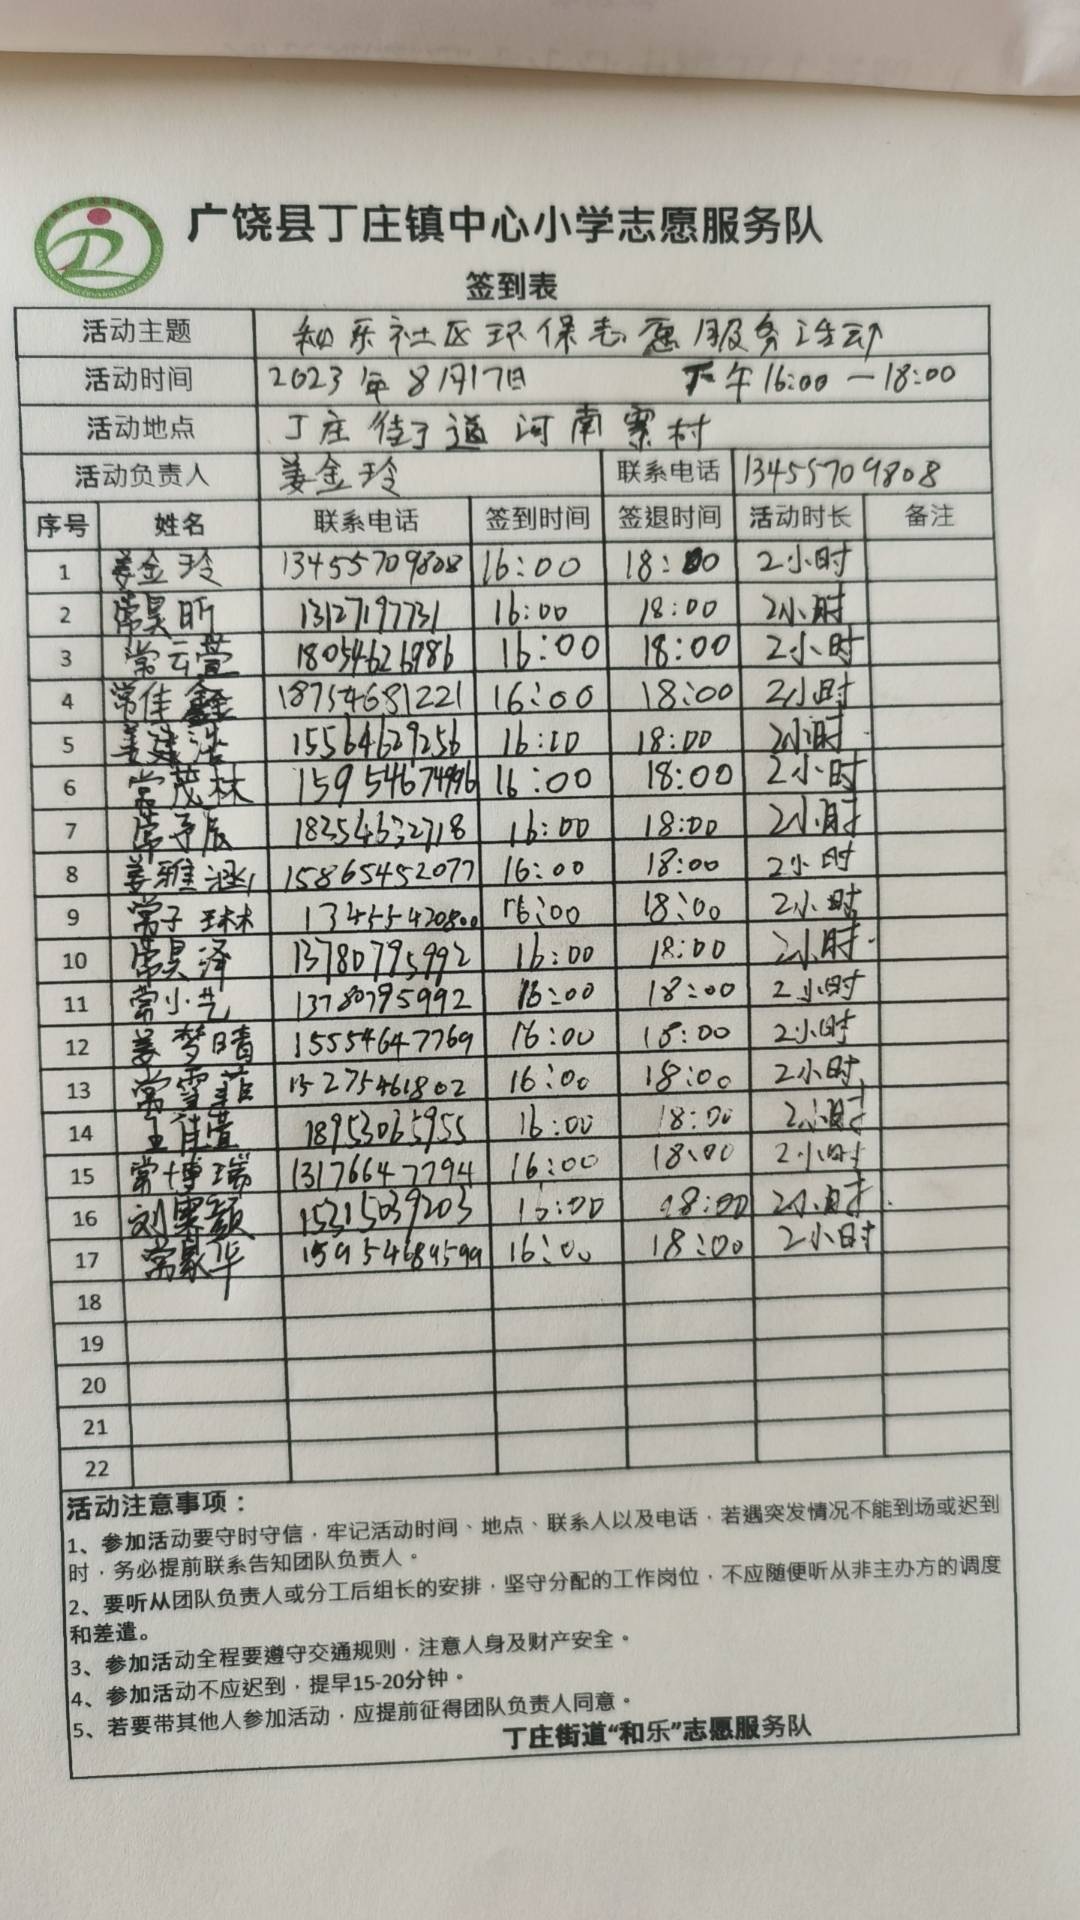 广饶县丁庄镇中心小学志愿服务队
签到表
活动主题 和乐社区环保志愿服务活动
活动时间 2023年8月17日 下午16:00一18:00
活动地点 丁庄街道河南寨村
活动负责人 姜金玲 联系电话 13455709808
序号 姓名 联系电话 签到时间 签退时间 活动时长 备注
1 姜金玲 13455709808 16:00 18:00 2小时
2 常昊昕 13127197731 16:00 18:00 2小时
3 常云萱 18054626986 16:00 18:00 2小时
4 常佳鑫 18754681221 16:00 18:00 2小时
5 姜建浩 15564629256 16:00 18:00 2小时
6 常茂林 15954674996 16:00 18:00 2小时
7 常予辰 18354632718 16:00 18:00 2小时
8 姜雅涵 15865452077 16:00 18:00 2小时
9 常子琳 13455420800 16:00 18:00 2小时
10 常昊泽 13780795992 16:00 18:00 2小时
11 常小艺 13780795992 16:00 18:00 2小时
12 姜梦晴 15554647769 16:00 18:00 2小时
13 常雪菲 15275461802 16:00 18:00 2小时
14 王佳萱 18953065955 16:00 18:00 2小时
15 常博瑞 13176647794 16:00 18:00 2小时
16 刘 15315039203 16:00 18:00 2小时
17 常豪华 15954689599 16:00 18:00 2小时
18
19
20
21
22
活动注意事项：
1、参加活动要守时守信，牢记活动时间、地点、联系人以及电话，若遇突发情况不能到场或迟到
时，务必提前联系告知团队负责人。
2、要听从团队负责人或分工后组长的安排，坚守分配的工作岗位，不应随便听从非主办方的调度
和差遣。
3、参加活动全程要遵守交通规则，注意人身及财产安全。
4、参加活动不应迟到，提早15-20分钟。
5、若要带其他人参加活动，应提前征得团队负责人同意。
丁庄街道“和乐”志愿服务队